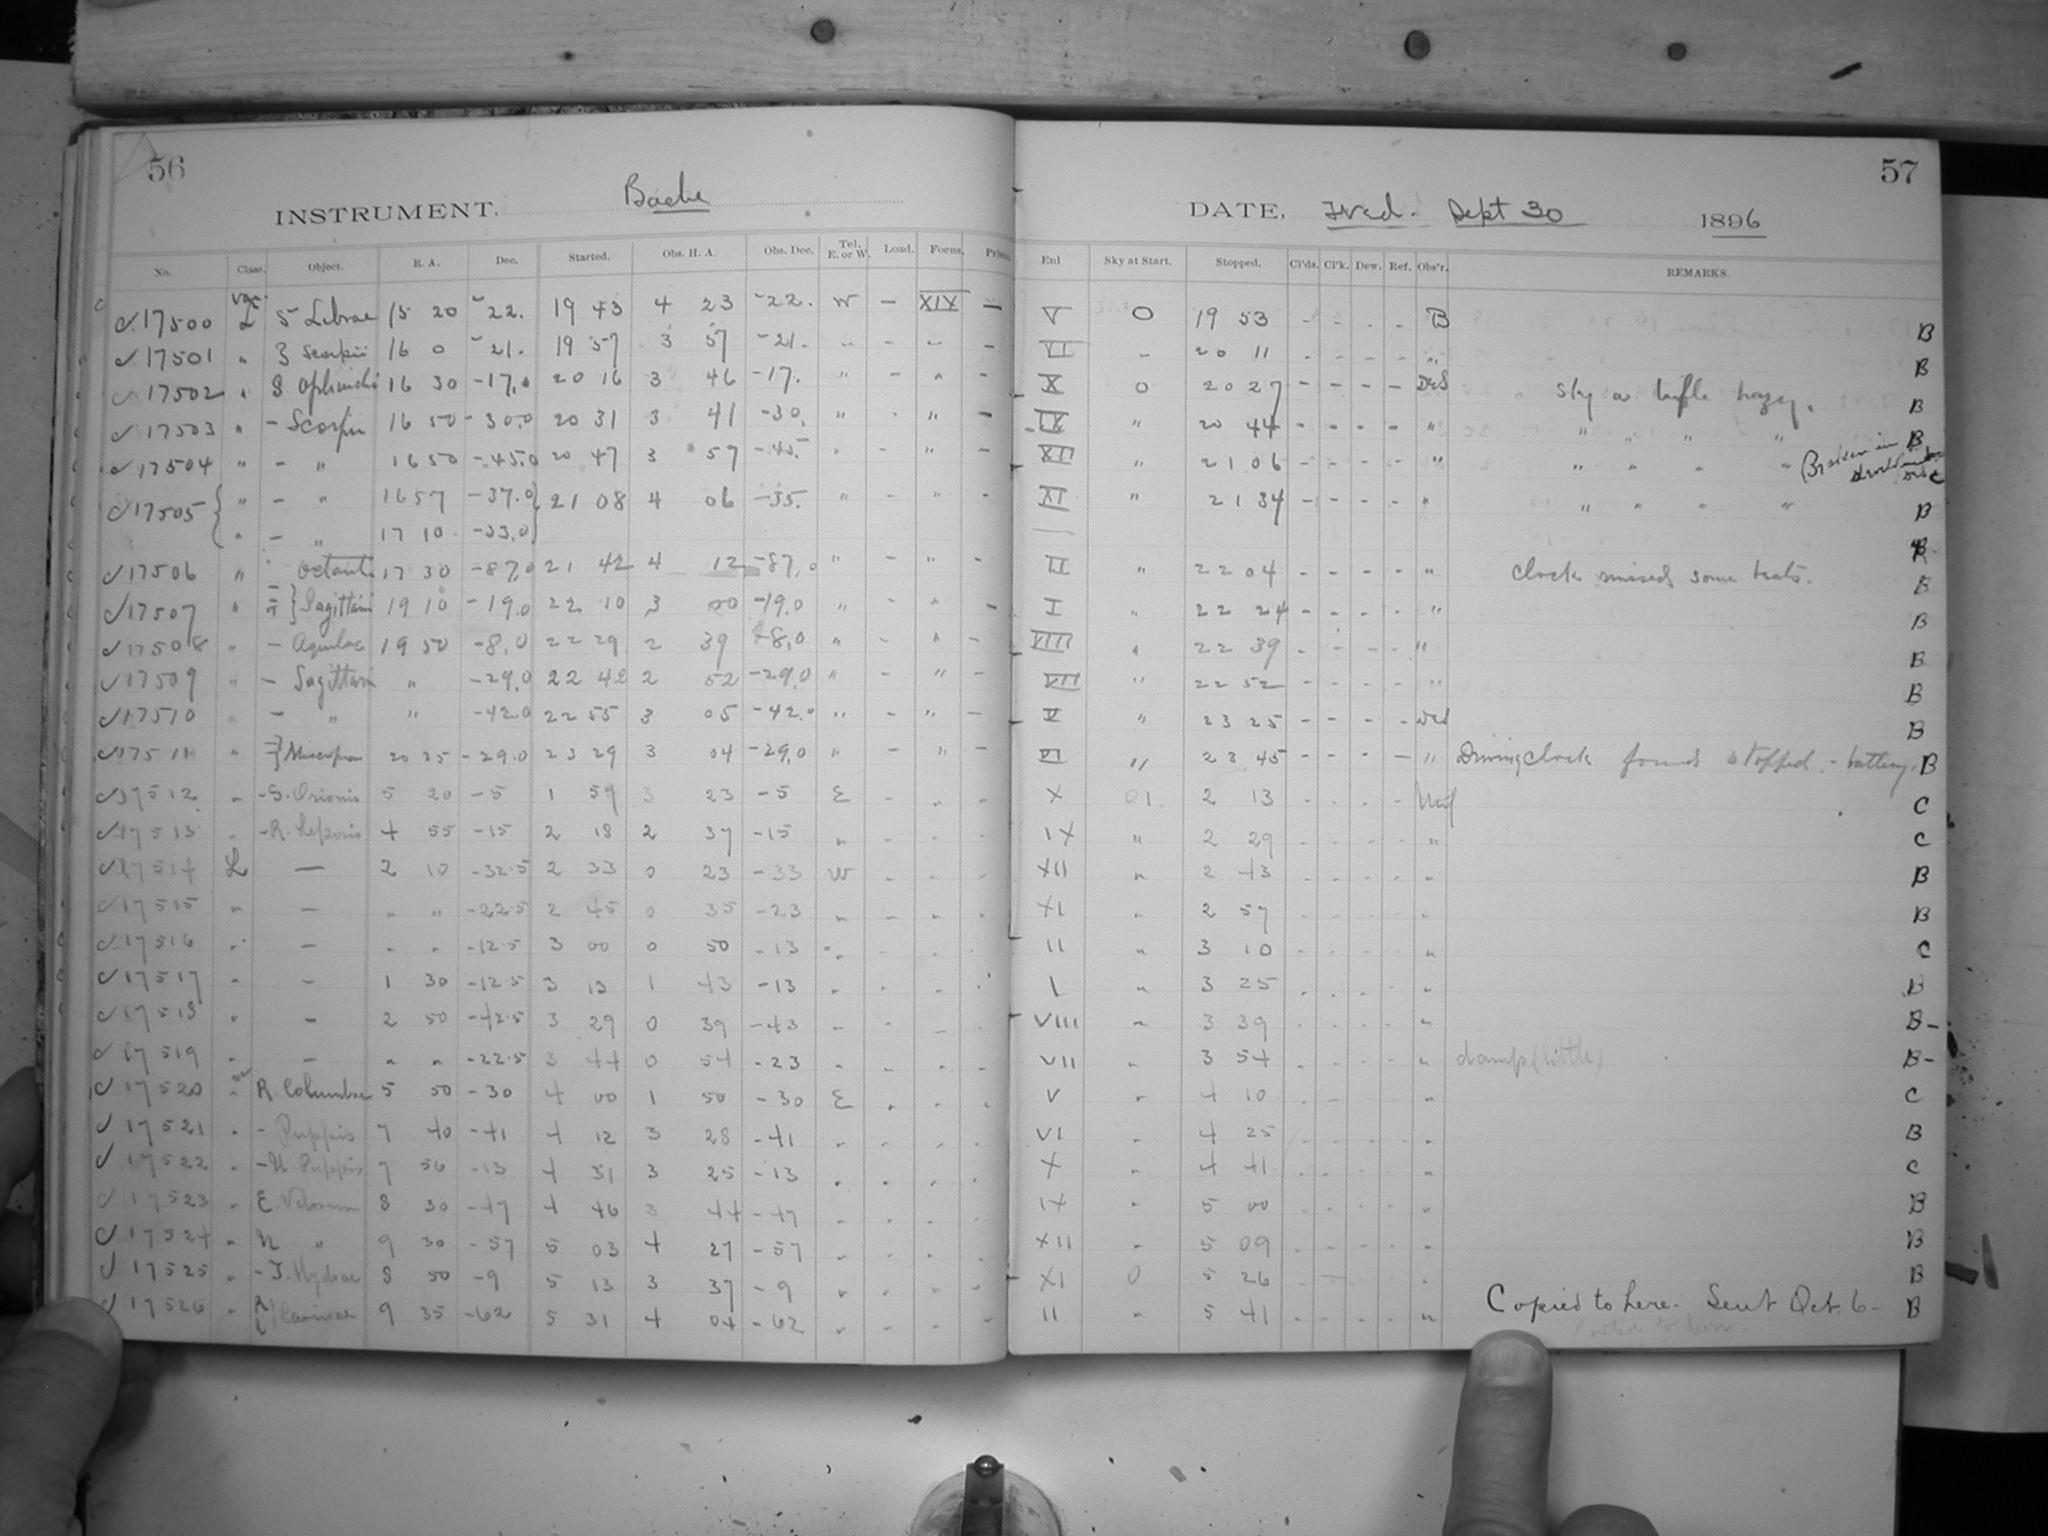 56
INSTRUMENT. Bache
No. Class. Object. R. A. Dec. Started. Obs. H. A. Obs. Dec. Tel. E. or W. Load. Focus.
17500 L S Librae 15 20 -22. 19 43 4 23 -22. W - XIX -
17501 " Z Scorpii 16 0 -21. 19 57 3 57 -21. - - - -
17502 " S Ophiuchi 16 30 -17.0 20 16 3 46 -17. " - " -
17503 " - Scorpii 16 50 -30.0 20 31 3 41 -30. " - " -
17504 " - " 16 50 -45.0 20 47 3 57 -45. " - " -
17505 { " - " 16 57 -37.0 } 21 08 4 06 -35. " - " -
" - " 17 10 -33.0
17506 " - Octantis 17 30 -87.0 21 42 4 12 -87.0 " - " -
17507 " } Sagittarii 19 10 -19.0 22 10 3 00 -19.0 " - " -
17508 " - Aquilae 19 50 -8.0 22 29 2 39 -8.0 " - " -
17509 " - Sagittarii " -29.0 22 42 2 52 -29.0 " - " -
17510 " - " " -42.0 22 55 3 05 -42.0 " - " -
17511 " 20 25 -29.0 23 29 3 04 -29.0 " - " -
17512 " - S. Orionis 5 20 -5 1 59 3 23 -5 E - " -
17513 " - R. Leporis 4 55 -15 2 18 2 37 -15 " - - -
17514 L - 2 10 -32.5 2 33 0 23 -33 W - - -
17515 " - " " -22.5 2 45 0 35 -23 " - - -
17516 " - " " -12.5 3 00 0 50 -13 " - - -
17517 " - 1 30 -12.5 3 13 1 43 -13 " - - -
17518 " - 2 50 -42.5 3 29 0 39 -43 " - - -
17519 " - " " -22.5 3 44 0 54 -23 " - - -
17520 " R. Columbae 5 50 -30 4 00 1 50 -30 E - - -
17521 " - Puppis 7 40 -41 4 12 3 28 -41 " - - -
17522 " - U. Puppis 7 56 -13 4 31 3 25 -13 " - - -
17523 " E. Velorum 8 30 -47 4 46 3 44 -47 " - - -
17524 " N " 9 30 -57 5 03 4 27 -57 " - - -
17525 " - T. Hydrae 8 50 -9 5 13 3 37 -9 " - - -
17526 " R } Carinae 9 35 -62 5 31 4 04 -62 " - - -
57
DATE, Wed. Sept 30 1896
Enl Sky at Start. Stopped. Cl'ds. Cl'k. Dew. Ref. Obs'r. REMARKS.
V O 19 53 - - - - B B
VI - 20 11 - - - - " B
X O 20 27 - - - - DeS Sky a trifle hazy. B
IX " 20 44 - - - - " " " " " B
XII " 21 06 - - - - " " " " " Broken in C
XI " 21 34 - - - - " " " " " B
II " 22 04 - - - - " Clock missed some beats. B
I " 22 24 - - - - " B
VIII " 22 39 - - - - " B
VII " 22 52 - - - - " B
V " 23 25 - - - - B
VI " 23 45 - - - - " Driving Clock found stopped - battery. B
X 01 2 13 - - - - C
IX " 2 29 - - - - " C
XII " 2 43 - - - - " B
XI " 2 57 - - - - " B
II " 3 10 - - - - " C
I " 3 25 - - - - " B
VIII " 3 39 - - - - " B-
VII " 3 54 - - - - " damp (little) B-
V " 4 10 - - - - " C
VI " 4 25 - - - - " B
X " 4 41 - - - - " C
IX " 5 00 - - - - " B
XII " 5 09 - - - - " B
XI O 5 26 - - - - " B
II " 5 41 - - - - " Copied to here. Sent Oct. 6- B